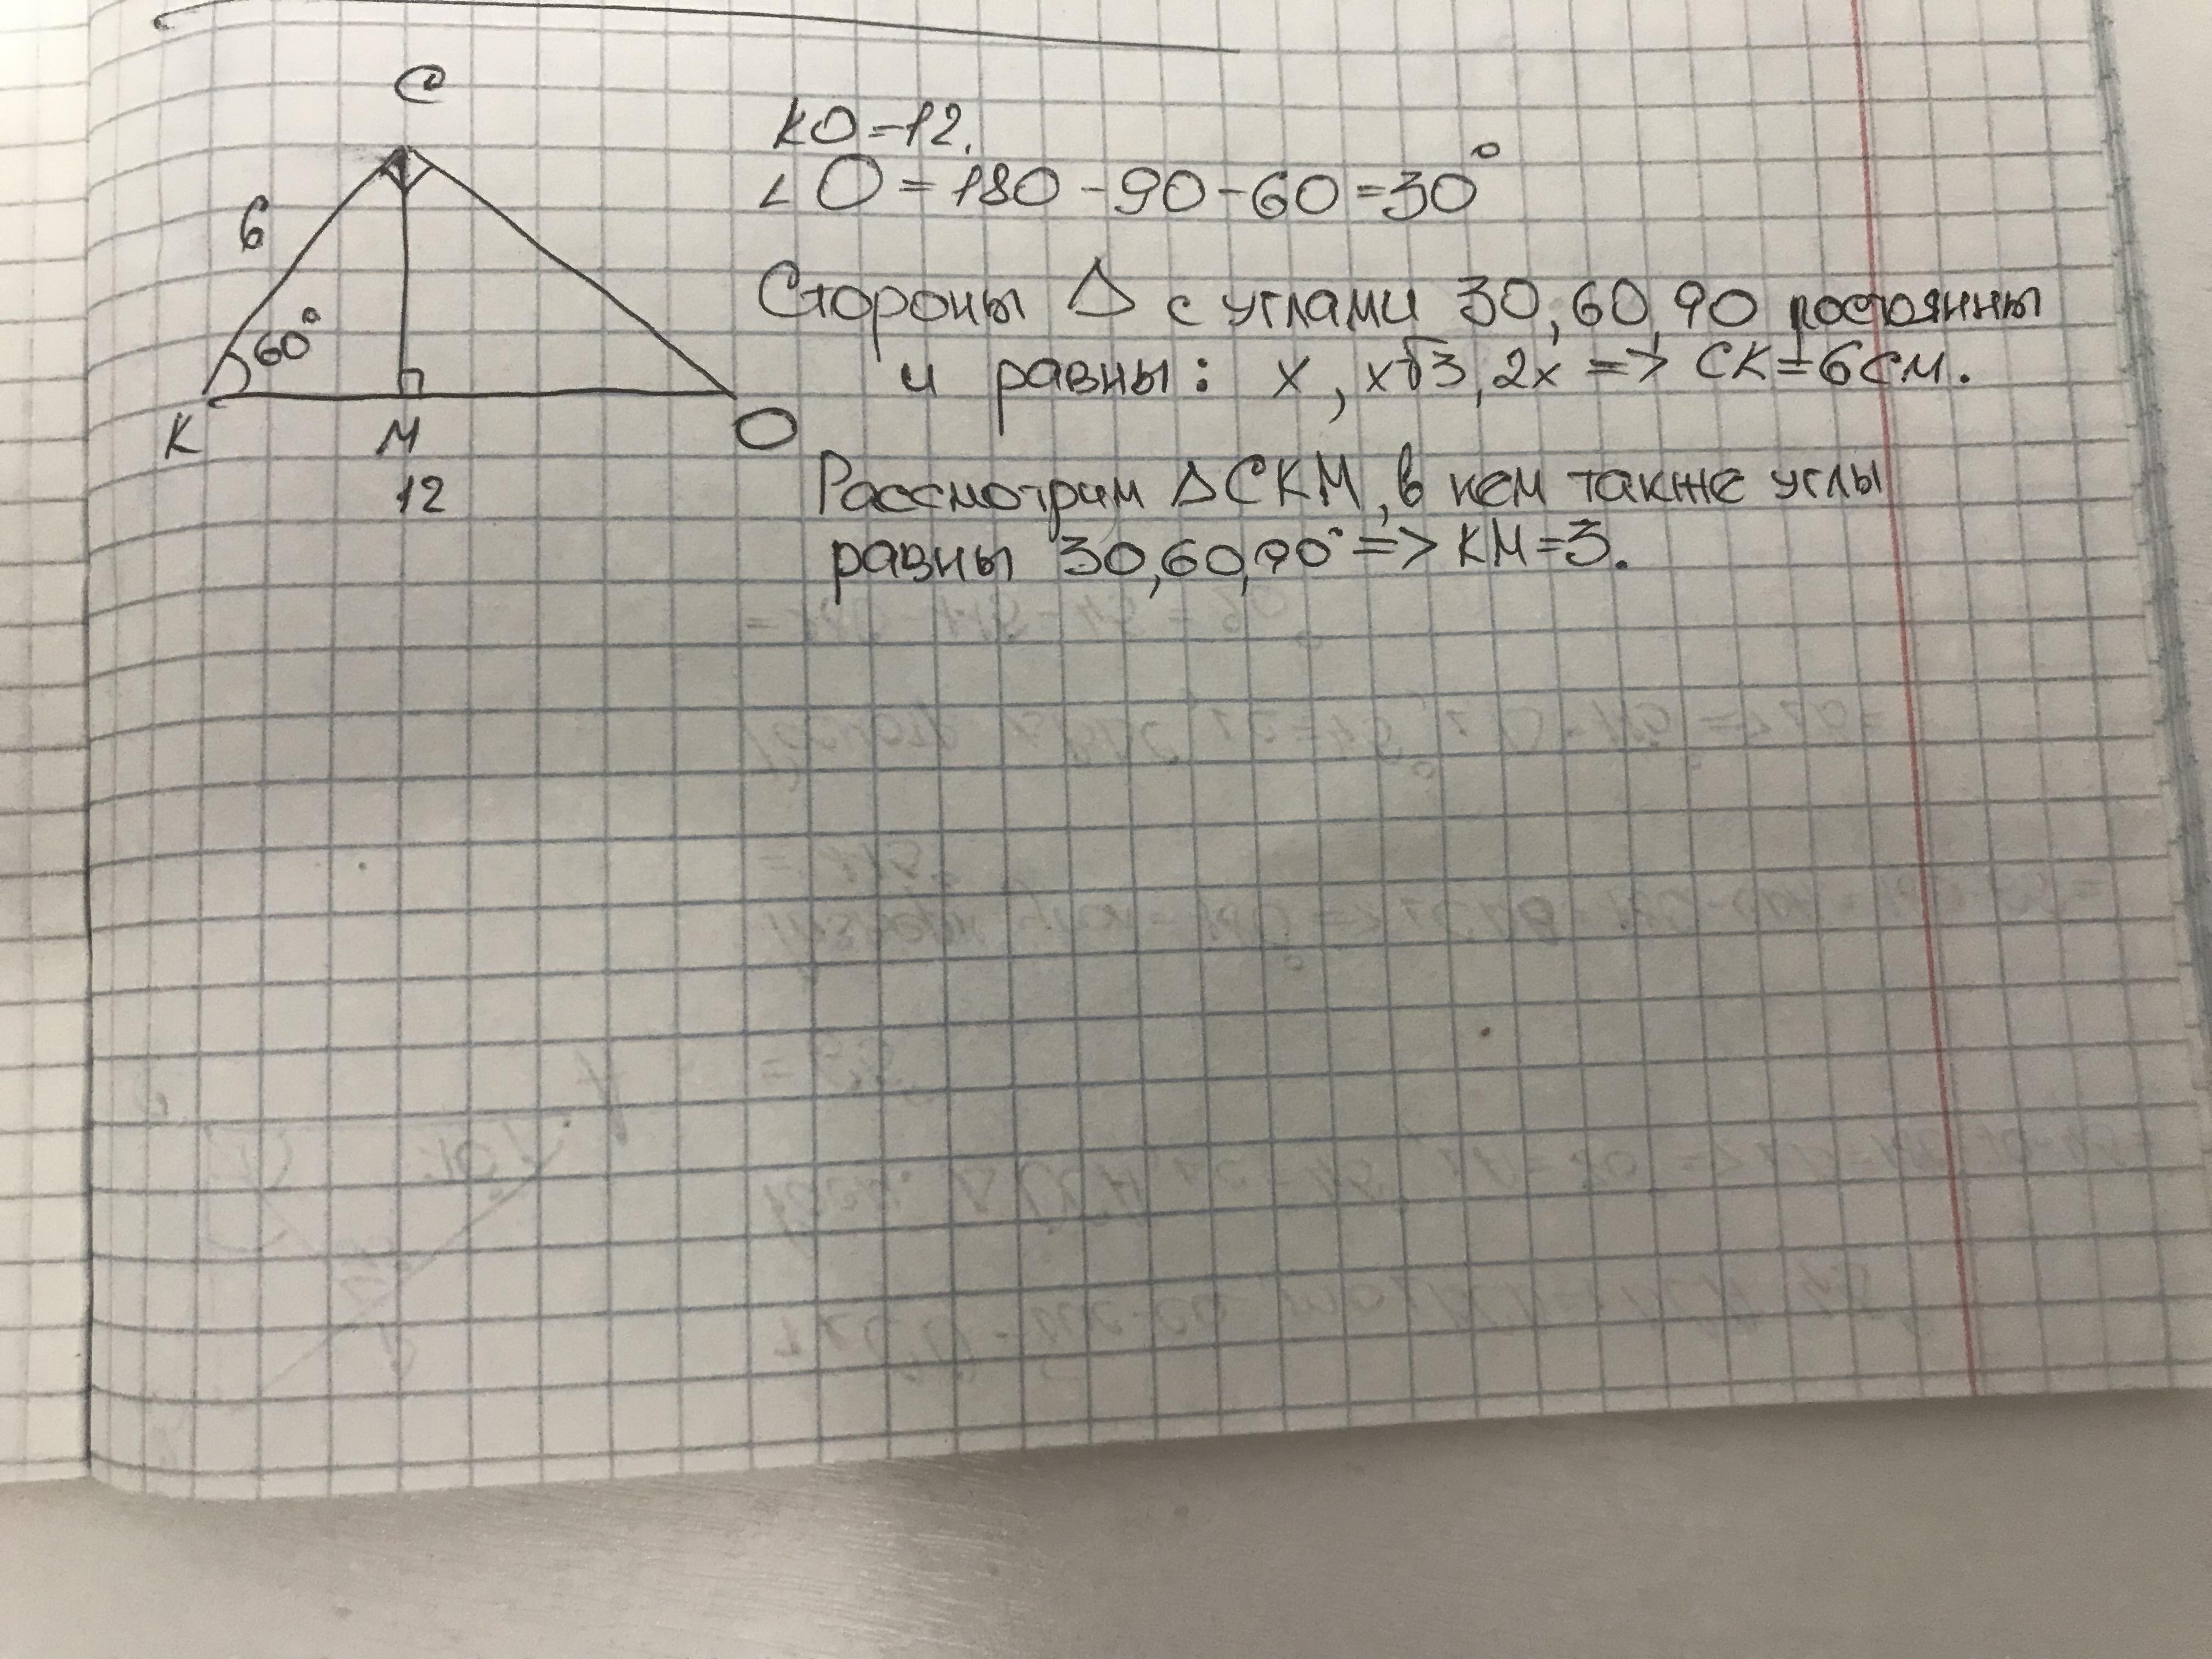 C
6
60°
K
M
O
12
KO=12.
∠O=180-90-60=30°
Стороны Δ с углами 30,60,90 постоянны
и равны: x, x√3, 2x => CK=6см.
Рассмотрим ΔCKM, в нем также углы
равны 30,60,90° => KM=3.